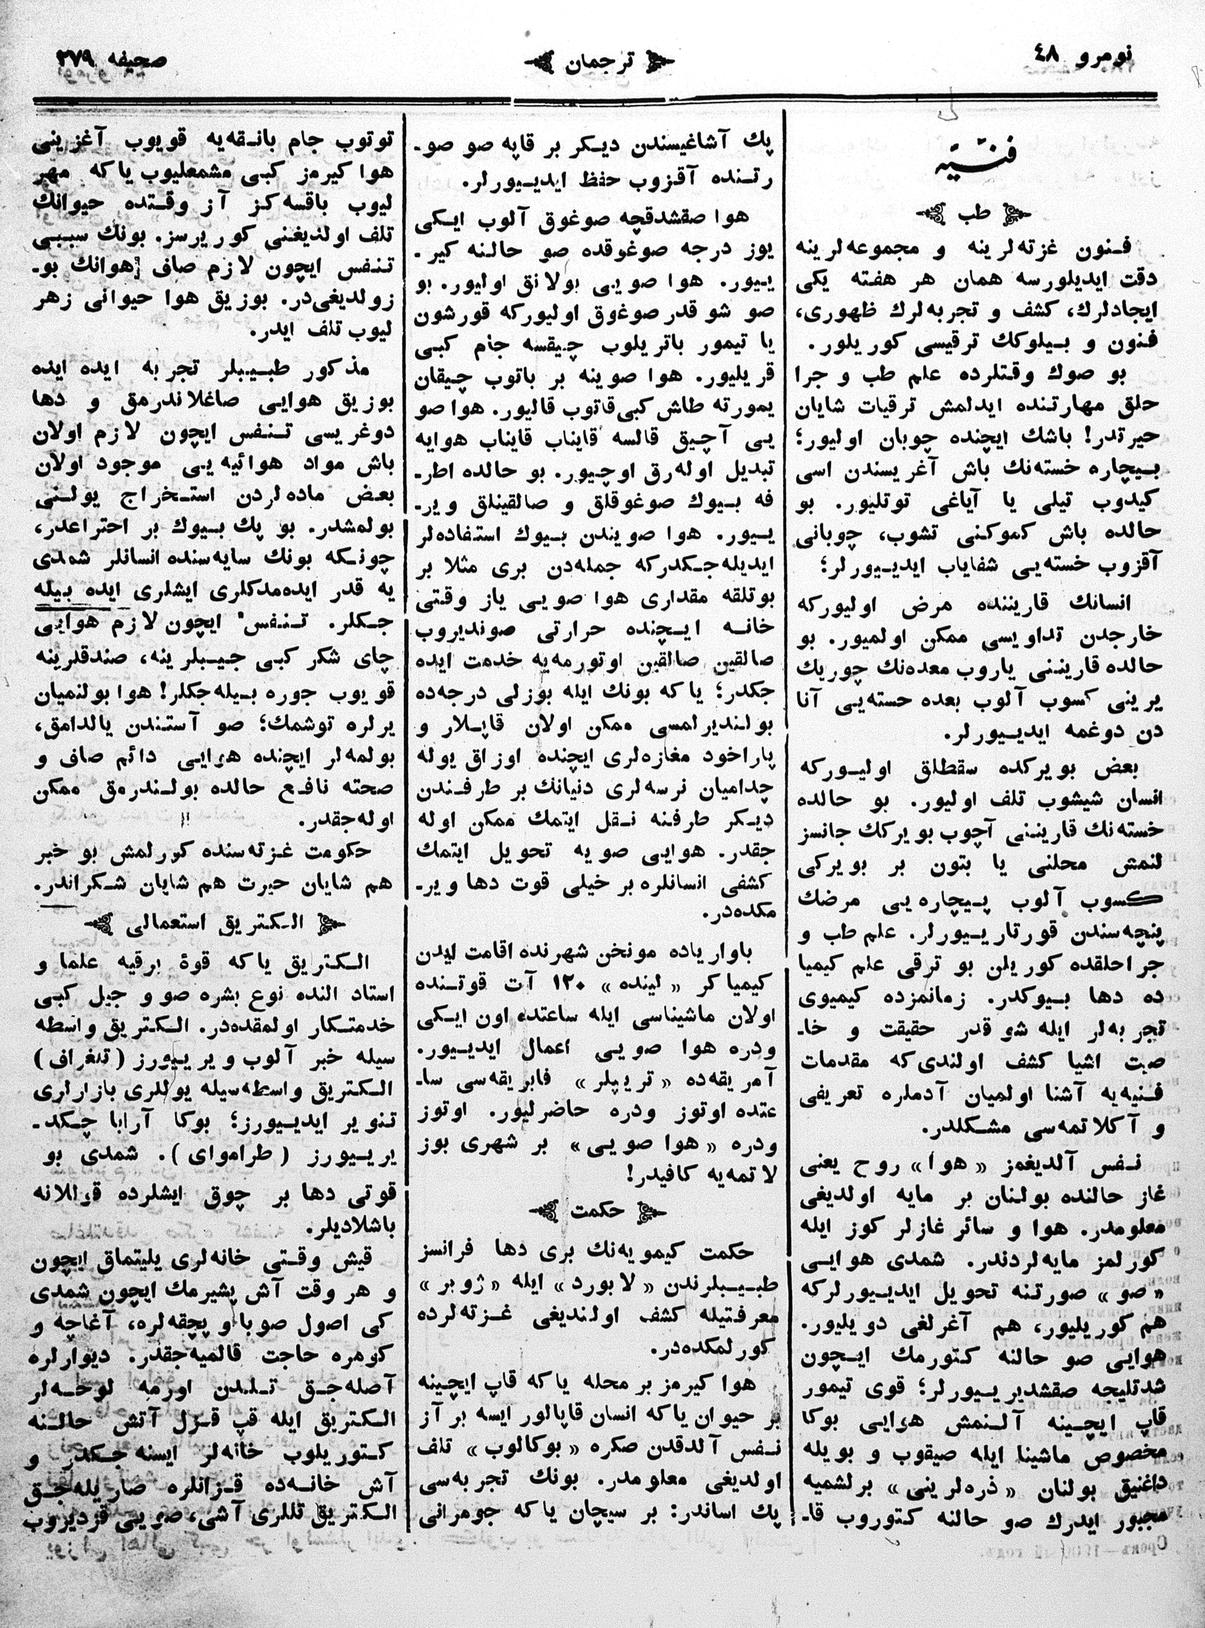 نومرو ٤٨
ترجمان
صحيفه ٢٧٩
فنّيّه
طب
فنون غزته‌لرينه و مجموعه‌لرينه
دقت ايديلورسه همان هر هفته يكى
ايجادلرك، كشف و تجربه‌لرك ظهورى،
فنون و بيلوكك ترقيسى كوريلور.
بو صوك وقتلرده علم طب و جرا
حلق مهارتنده ايدلمش ترقيات شايان
حيرتدر! باشك ايچنده چوبان اوليور؛
بيچاره خسته‌نك باش آغريسندن اسى
كيدوب تيلى يا آياغى توتليور. بو
حالده باش كموكنى تشوب، چوبانى
آقزوب خسته‌يى شفاياب ايدييورلر؛
انسانك قاريننده مرض اوليوركه
خارجدن تداويسى ممكن اولميور. بو
حالده قاريننى ياروب معده‌نك چوريك
يرينى كسوب آلوب بعده خسته‌يى آنا
دن دوغمه ايدييورلر.
بعض بويركده سقطلق اوليوركه
انسان شيشوب تلف اوليور. بو حالده
خسته‌نك قاريننى آچوب بويركك جانسز
لنمش محلنى يا بتون بر بويركى
كسوب آلوب پيچاره‌يى مرضك
پنچه‌سندن قورتارييورلر. علم طب و
جراحلقده كوريلن بو ترقى علم كيميا
ده دها بيوكدر. زمانمزده كيميوى
تجربه‌لر ايله شو قدر حقيقت و خا-
صيت اشيا كشف اولندى‌كه مقدمات
فنيه‌يه آشنا اولميان آدملره تعريفى
و آكلاتمه‌سى مشكلدر.
نفس آلديغمز «هوا» روح يعنى
غاز حالنده بولنان بر مايه اولديغى
معلومدر. هوا و سائر غازلر كوز ايله
كورلمز مايه‌لردندر. شمدى هوايى
«صو» صورتنه تحويل ايدييورلركه
هم كوريليور، هم آغرلغى دويليور.
هوايى صو حالنه كتورمك ايچون
شدتليجه صقشديرييورلر؛ قوى تيمور
قاپ ايچينه آلنمش هوايى بوكا
مخصوص ماشينا ايله صيقوب و بويله
داغنيق بولنان «ذره‌لرينى» برلشميه
مجبور ايدرك صو حالنه كتوروب قا-
پك آشاغيسندن ديكر بر قاپه صو صو-
رتنده آقزوب حفظ ايدييورلر.
هوا صقشدقچه صوغوق آلوب ايكى
يوز درجه صوغوقده صو حالنه كير-
ييور. هوا صويى بولانق اوليور. بو
صو شو قدر صوغوق اوليوركه قورشون
يا تيمور باتريلوب چيقسه جام كبى
قريليور. هوا صوينه بر باتوب چيقان
يمورته طاش كبى قاتوب قاليور. هوا صو
يى آچيق قالسه قايناب قايناب هوايه
تبديل اوله‌رق اوچيور. بو حالده اطر-
فه بيوك صوغوقلق و صالقينلق وير-
ييور. هوا صويندن بيوك استفاده‌لر
ايديله‌جكدركه جمله‌دن برى مثلا بر
بوتلقه مقدارى هوا صويى ياز وقتى
خانه ايچنده حرارتى صونديروب
صالقين صالقين اوتورمه‌يه خدمت ايده
جكدر؛ ياكه بونك ايله بوزلى درجه‌ده
بولنديرلمسى ممكن اولان قاپلار و
پاراخود مغازه‌لرى ايچنده اوزاق يوله
چداميان نرسه‌لرى دنيانك بر طرفندن
ديكر طرفنه نقل ايتمك ممكن اوله
جقدر. هوايى صويه تحويل ايتمك
كشفى انسانلره بر خيلى قوت دها وير-
مكده‌در.
باوارياده مونخن شهرنده اقامت ايدن
كيمياكر «لينده» ١٢٠ آت قوتنده
اولان ماشيناسى ايله ساعتده اون ايكى
ودره هوا صويى اعمال ايدييور.
آمريقه‌ده «تريپلر» فابريقه‌سى سا-
عتده اوتوز ودره حاضرليور. اوتوز
ودره «هوا صويى» بر شهرى بوز
لاتمه‌يه كافيدر!
حكمت
حكمت كيمويه‌نك برى دها فرانسز
طبيبلرندن «لابورد» ايله «ژوبر»
معرفتيله كشف اولنديغى غزته‌لرده
كورلمكده‌در.
هوا كيرمز بر محله ياكه قاپ ايچينه
بر حيوان ياكه انسان قاپالور ايسه بر آز
نفس آلدقدن صكره «بوكالوب» تلف
اولديغى معلومدر. بونك تجربه‌سى
پك اساندر: بر سيچان ياكه جومرانى
توتوب جام بانقه‌يه قويوب آغزينى
هوا كيرمز كبى مشمعليوب ياكه مهر
ليوب باقسه‌كز آز وقتده حيوانك
تلف اولديغنى كوريرسز. بونك سببى
تنفس ايچون لازم صاف هوانك بو-
زولديغى‌در. بوزيق هوا حيوانى زهر
ليوب تلف ايدر.
مذكور طبيبلر تجربه ايده ايده
بوزيق هوايى صاغلاندرمق و دها
دوغريسى تنفس ايچون لازم اولان
باش مواد هوائيه‌يى موجود اولان
بعض ماده‌لردن استخراج يولنى
بولمشدر. بو پك بيوك بر اختراعدر،
چونكه بونك سايه‌سنده انسانلر شمدى
يه قدر ايده‌مدكلرى ايشلرى ايده بيله
جكلر. تنفس ايچون لازم هوايى
چاى شكر كبى جيبلرينه، صندقلرينه
قويوب جوره بيله‌جكلر! هوا بولنميان
يرلره توشمك؛ صو آستندن يالدامق،
بولمه‌لر ايچنده هوايى دائم صاف و
صحته نافع حالده بولندرمق ممكن
اوله‌جقدر.
حكومت غزته‌سنده كورلمش بو خبر
هم شايان حيرت هم شايان شكراندر.
الكتريق استعمالى
الكتريق ياكه قوۀ برقيه علما و
استاد النده نوع بشره صو و جيل كبى
خدمتكار اولمقده‌در. الكتريق واسطه
سيله خبر آلوب ويرييورز (تلغراف)
الكتريق واسطه‌سيله يوللرى بازارلرى
تنوير ايدييورز؛ بوكا آرابا چكد-
يرييورز (طراموای). شمدى بو
قوتى دها بر چوق ايشلرده قوللانه
باشلاديلر.
قيش وقتى خانه‌لرى يليتماق ايچون
و هر وقت آش پشيرمك ايچون شمدى
كى اصول صوبا و پچقه‌لره، آغاچه و
كومره حاجت قالميه‌جقدر. ديوارلره
آصله‌جق تلدن اورمه لوحه‌لر
الكتريق ايله قپ قزل آتش حالنه
كتوريلوب خانه‌لر ايسنه جكدر و
آش خانه‌ده قزانلره صاريله‌جق
الكتريق تللرى آشى، صويى قزديروب